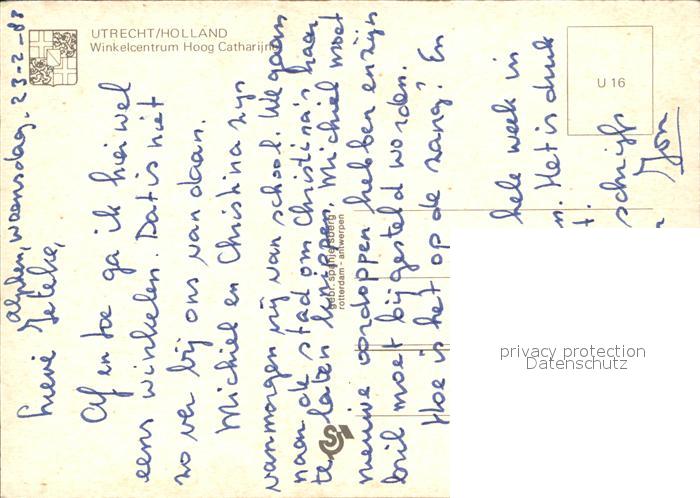 UTRECHT/HOLLAND
Winkelcentrum Hoog Catharijne
U 16
gebr. spanjersberg
rotterdam - antwerpen
Alphen, woensdag. 23-2-83
Lieve Jeteke,
Af en toe ga ik hier wel
eens winkelen. Dat is niet
zo ver bij ons vandaan.
Michiel en Christina zijn
vanmorgen vrij van school. We gaan
naar de stad om Christina's haar
te laten knippen. Michiel moet
nieuwe oordoppen hebben en zijn
bril moet bijgesteld worden.
Hoe is het op de zang? En
hele week in
n. Het is druk
t.
schrijfs
Jon
privacy protection
Datenschutz